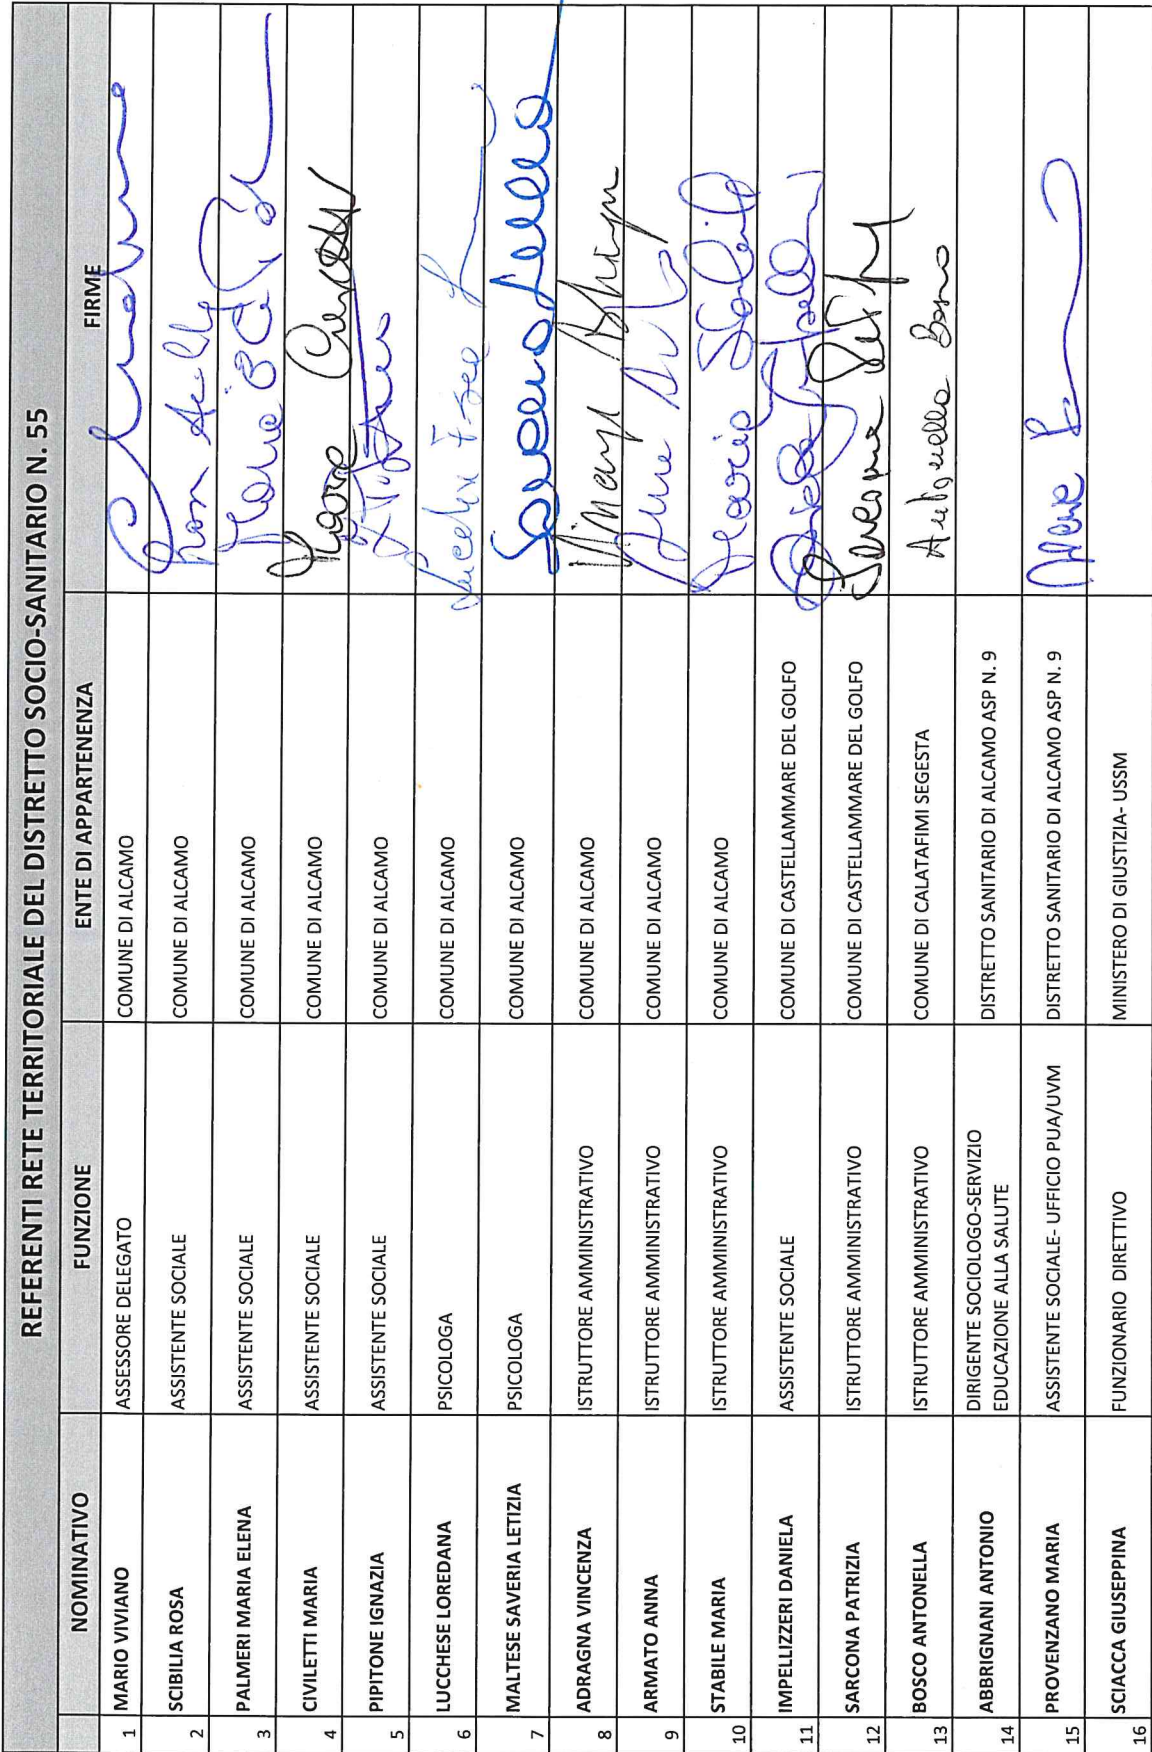 REFERENTI RETE TERRITORIALE DEL DISTRETTO SOCIO-SANITARIO N. 55
NOMINATIVO FUNZIONE ENTE DI APPARTENENZA FIRME
1 MARIO VIVIANO ASSESSORE DELEGATO COMUNE DI ALCAMO
2 SCIBILIA ROSA ASSISTENTE SOCIALE COMUNE DI ALCAMO
3 PALMERI MARIA ELENA ASSISTENTE SOCIALE COMUNE DI ALCAMO
4 CIVILETTI MARIA ASSISTENTE SOCIALE COMUNE DI ALCAMO
5 PIPITONE IGNAZIA ASSISTENTE SOCIALE COMUNE DI ALCAMO
6 LUCCHESE LOREDANA PSICOLOGA COMUNE DI ALCAMO
7 MALTESE SAVERIA LETIZIA PSICOLOGA COMUNE DI ALCAMO
8 ADRAGNA VINCENZA ISTRUTTORE AMMINISTRATIVO COMUNE DI ALCAMO
9 ARMATO ANNA ISTRUTTORE AMMINISTRATIVO COMUNE DI ALCAMO
10 STABILE MARIA ISTRUTTORE AMMINISTRATIVO COMUNE DI ALCAMO
11 IMPELLIZZERI DANIELA ASSISTENTE SOCIALE COMUNE DI CASTELLAMMARE DEL GOLFO
12 SARCONA PATRIZIA ISTRUTTORE AMMINISTRATIVO COMUNE DI CASTELLAMMARE DEL GOLFO
13 BOSCO ANTONELLA ISTRUTTORE AMMINISTRATIVO COMUNE DI CALATAFIMI SEGESTA Antonella Bosco
14 ABBRIGNANI ANTONIO DIRIGENTE SOCIOLOGO-SERVIZIO
EDUCAZIONE ALLA SALUTE DISTRETTO SANITARIO DI ALCAMO ASP N. 9
15 PROVENZANO MARIA ASSISTENTE SOCIALE- UFFICIO PUA/UVM DISTRETTO SANITARIO DI ALCAMO ASP N. 9
16 SCIACCA GIUSEPPINA FUNZIONARIO DIRETTIVO MINISTERO DI GIUSTIZIA- USSM